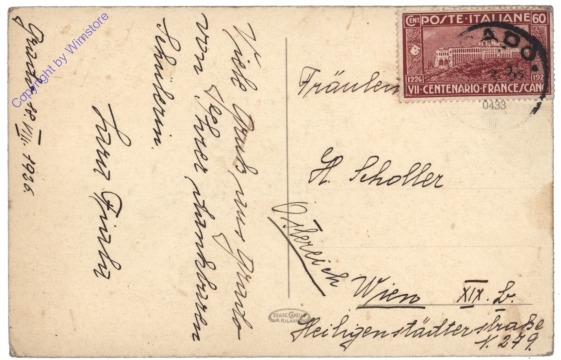 Grado 18. VII. 1926
Viele Grüße aus Grado
von Ihrer dankbaren
Schülerin.
POSTE·ITALIANE 60
CENT
1226
VII·CENTENARIO·FRANCESCANO
ADO
0433
Fräulein
H. Scholler
Österreich
Wien XIX. b.
Heiligenstädterstraße
N. 279.
Copyright by Wimstore